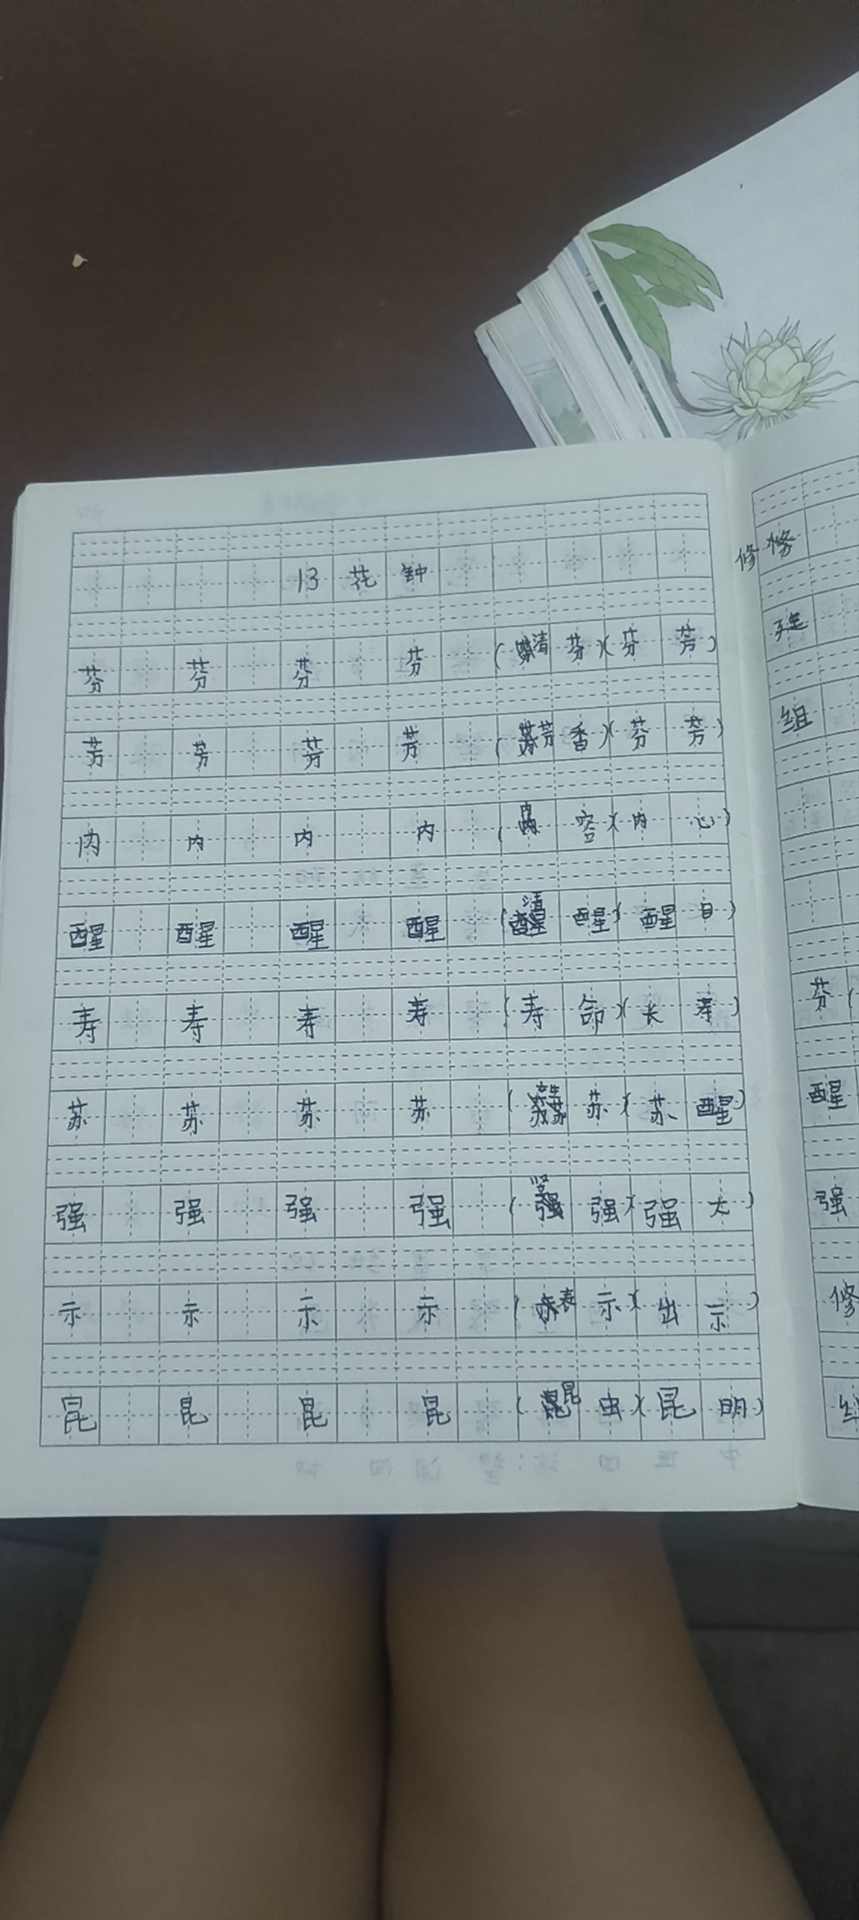 13 花钟
芬 芬 芬 芬 (清芬)(芬芳)
芳 芳 芳 芳 (芳香)(芬芳)
内 内 内 内 (内容)(内心)
醒 醒 醒 醒 (清醒)(醒目)
寿 寿 寿 寿 (寿命)(长寿)
苏 苏 苏 苏 (苏)(苏醒)
强 强 强 强 (坚强)(强大)
示 示 示 示 (表示)(出示)
昆 昆 昆 昆 (昆虫)(昆明)
修 修
组
芬(
醒
强
修